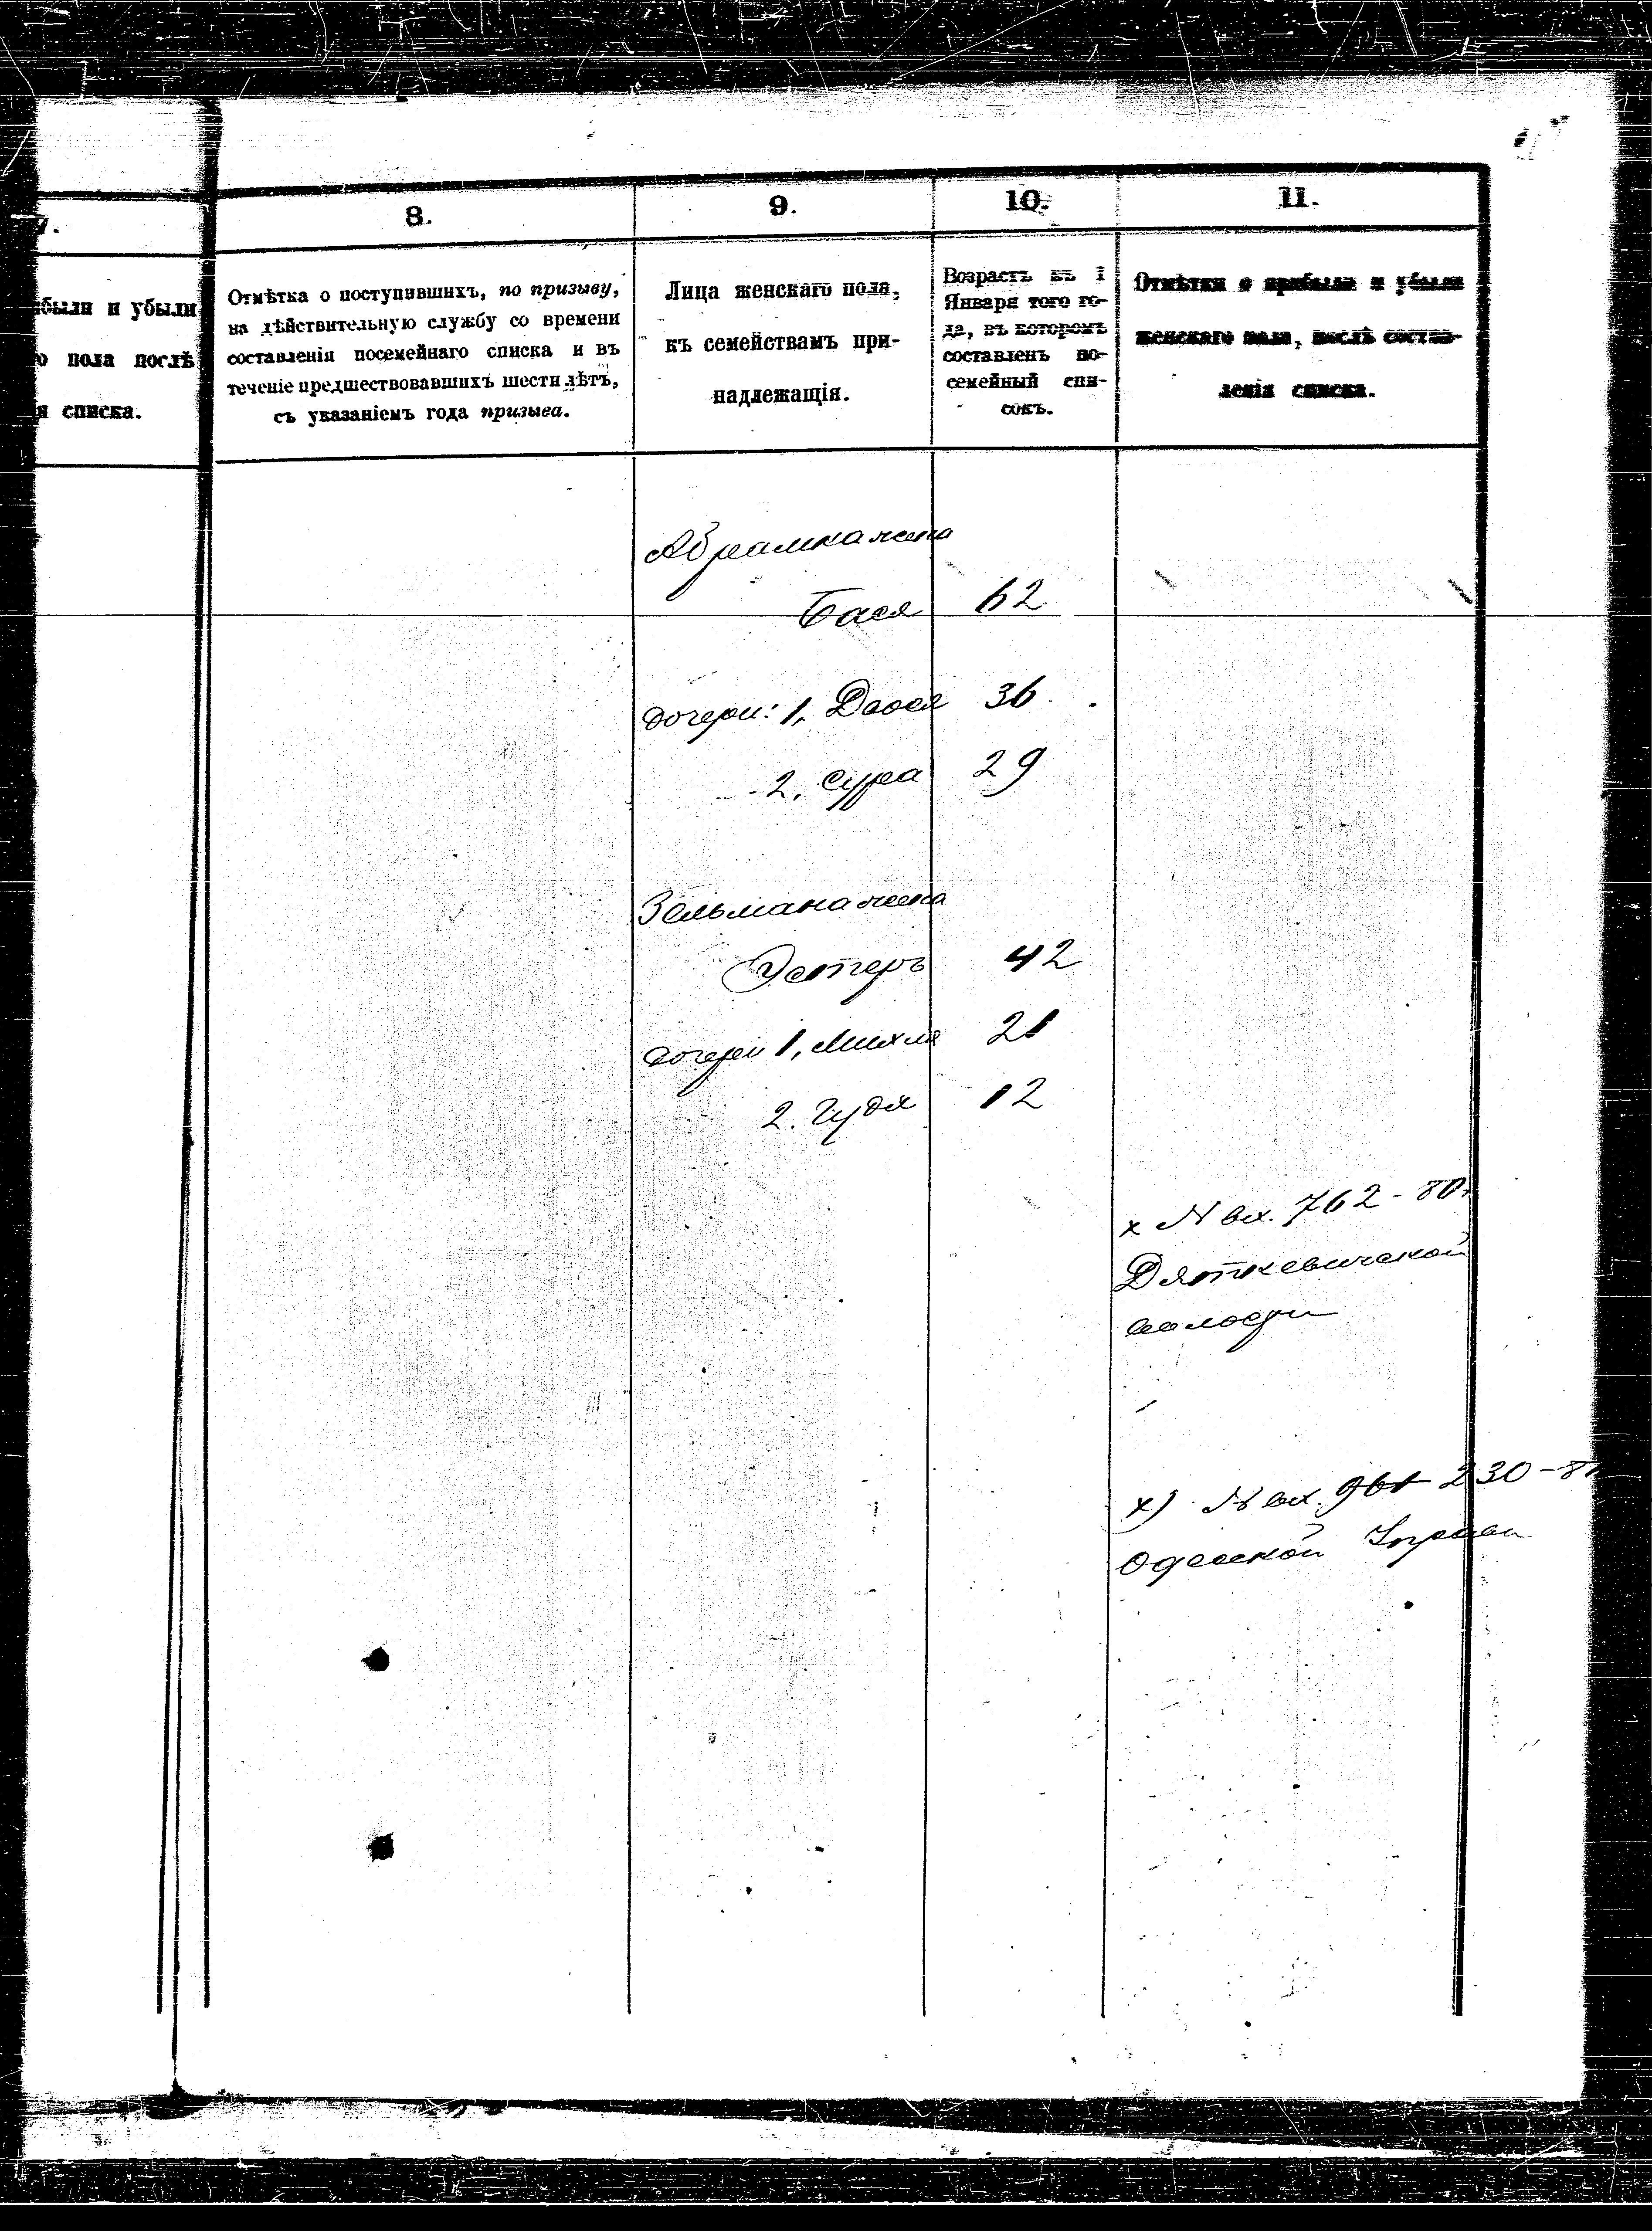 7.
8.
9.
10.
11.
были и убыли
пола послѣ
списка.
Отмѣтка о поступившихъ, по призыву,
на дѣйствительную службу со времени
составленія посемейнаго списка и въ
теченіе предшествовавшихъ шести лѣтъ,
съ указаніемъ года призыва.
Лица женскаго пола,
къ семействамъ при-
надлежащія.
Возрастъ къ 1
Января того го-
да, въ которомъ
составленъ по-
семейный спи-
сокъ.
Отмѣтки о прибыли и убыли
женскаго пола, послѣ состав-
ленія списка.
Абрамка жена
Бася 62
дочери: 1, Двося 36
2, Сура 29
Зельмана жена
Эстеръ 42
дочери 1, Михля 21
2. Гудя 12
х N вх. 762-80
Дяткевичской
волости
х) N вх. 961 230-8
Одесской Управы